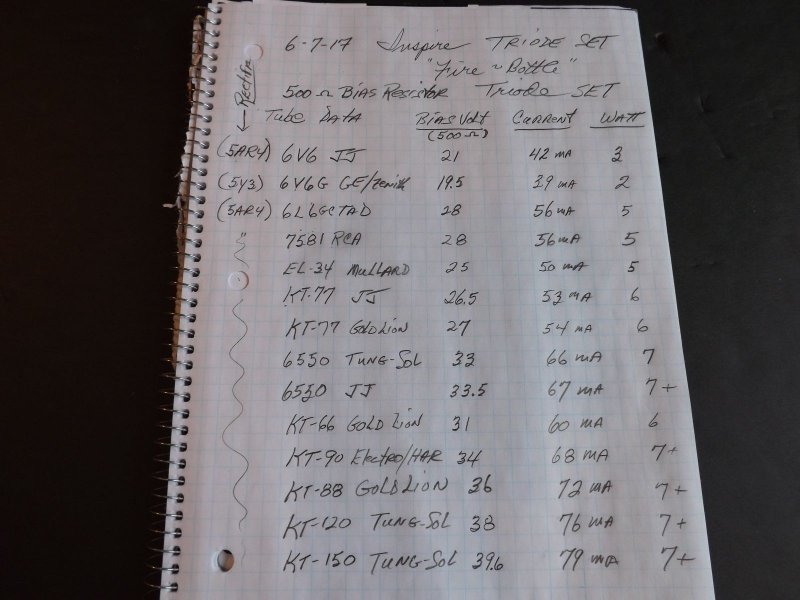 6-7-17 Inspire TRIODE SET
"Fire ~ Bottle"
500 Ω BIAS RESISTOR Triode SET
← Rectifier
Tube DATA BIAS Volt (500 Ω) CURRENT WATT
(5AR4) 6V6 JJ 21 42 mA 3
(5Y3) 6V6G GE/Zenith 19.5 39 mA 2
(5AR4) 6L6GC TAD 28 56 mA 5
" 7581 RCA 28 56 mA 5
EL-34 MULLARD 25 50 mA 5
KT-77 JJ 26.5 53 mA 6
KT-77 GOLD LION 27 54 mA 6
6550 TUNG-SOL 33 66 mA 7
6550 JJ 33.5 67 mA 7+
KT-66 GOLD LION 31 60 mA 6
KT-90 Electro/HAR 34 68 mA 7+
KT-88 GOLD LION 36 72 mA 7+
KT-120 TUNG-SOL 38 76 mA 7+
KT-150 TUNG-SOL 39.6 79 mA 7+